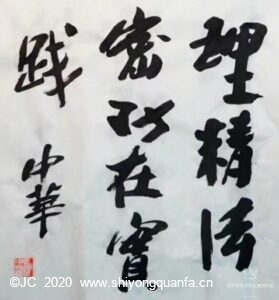 理精法
密功在實
践
中華
©JC 2020 www.shiyongquanfa.cn